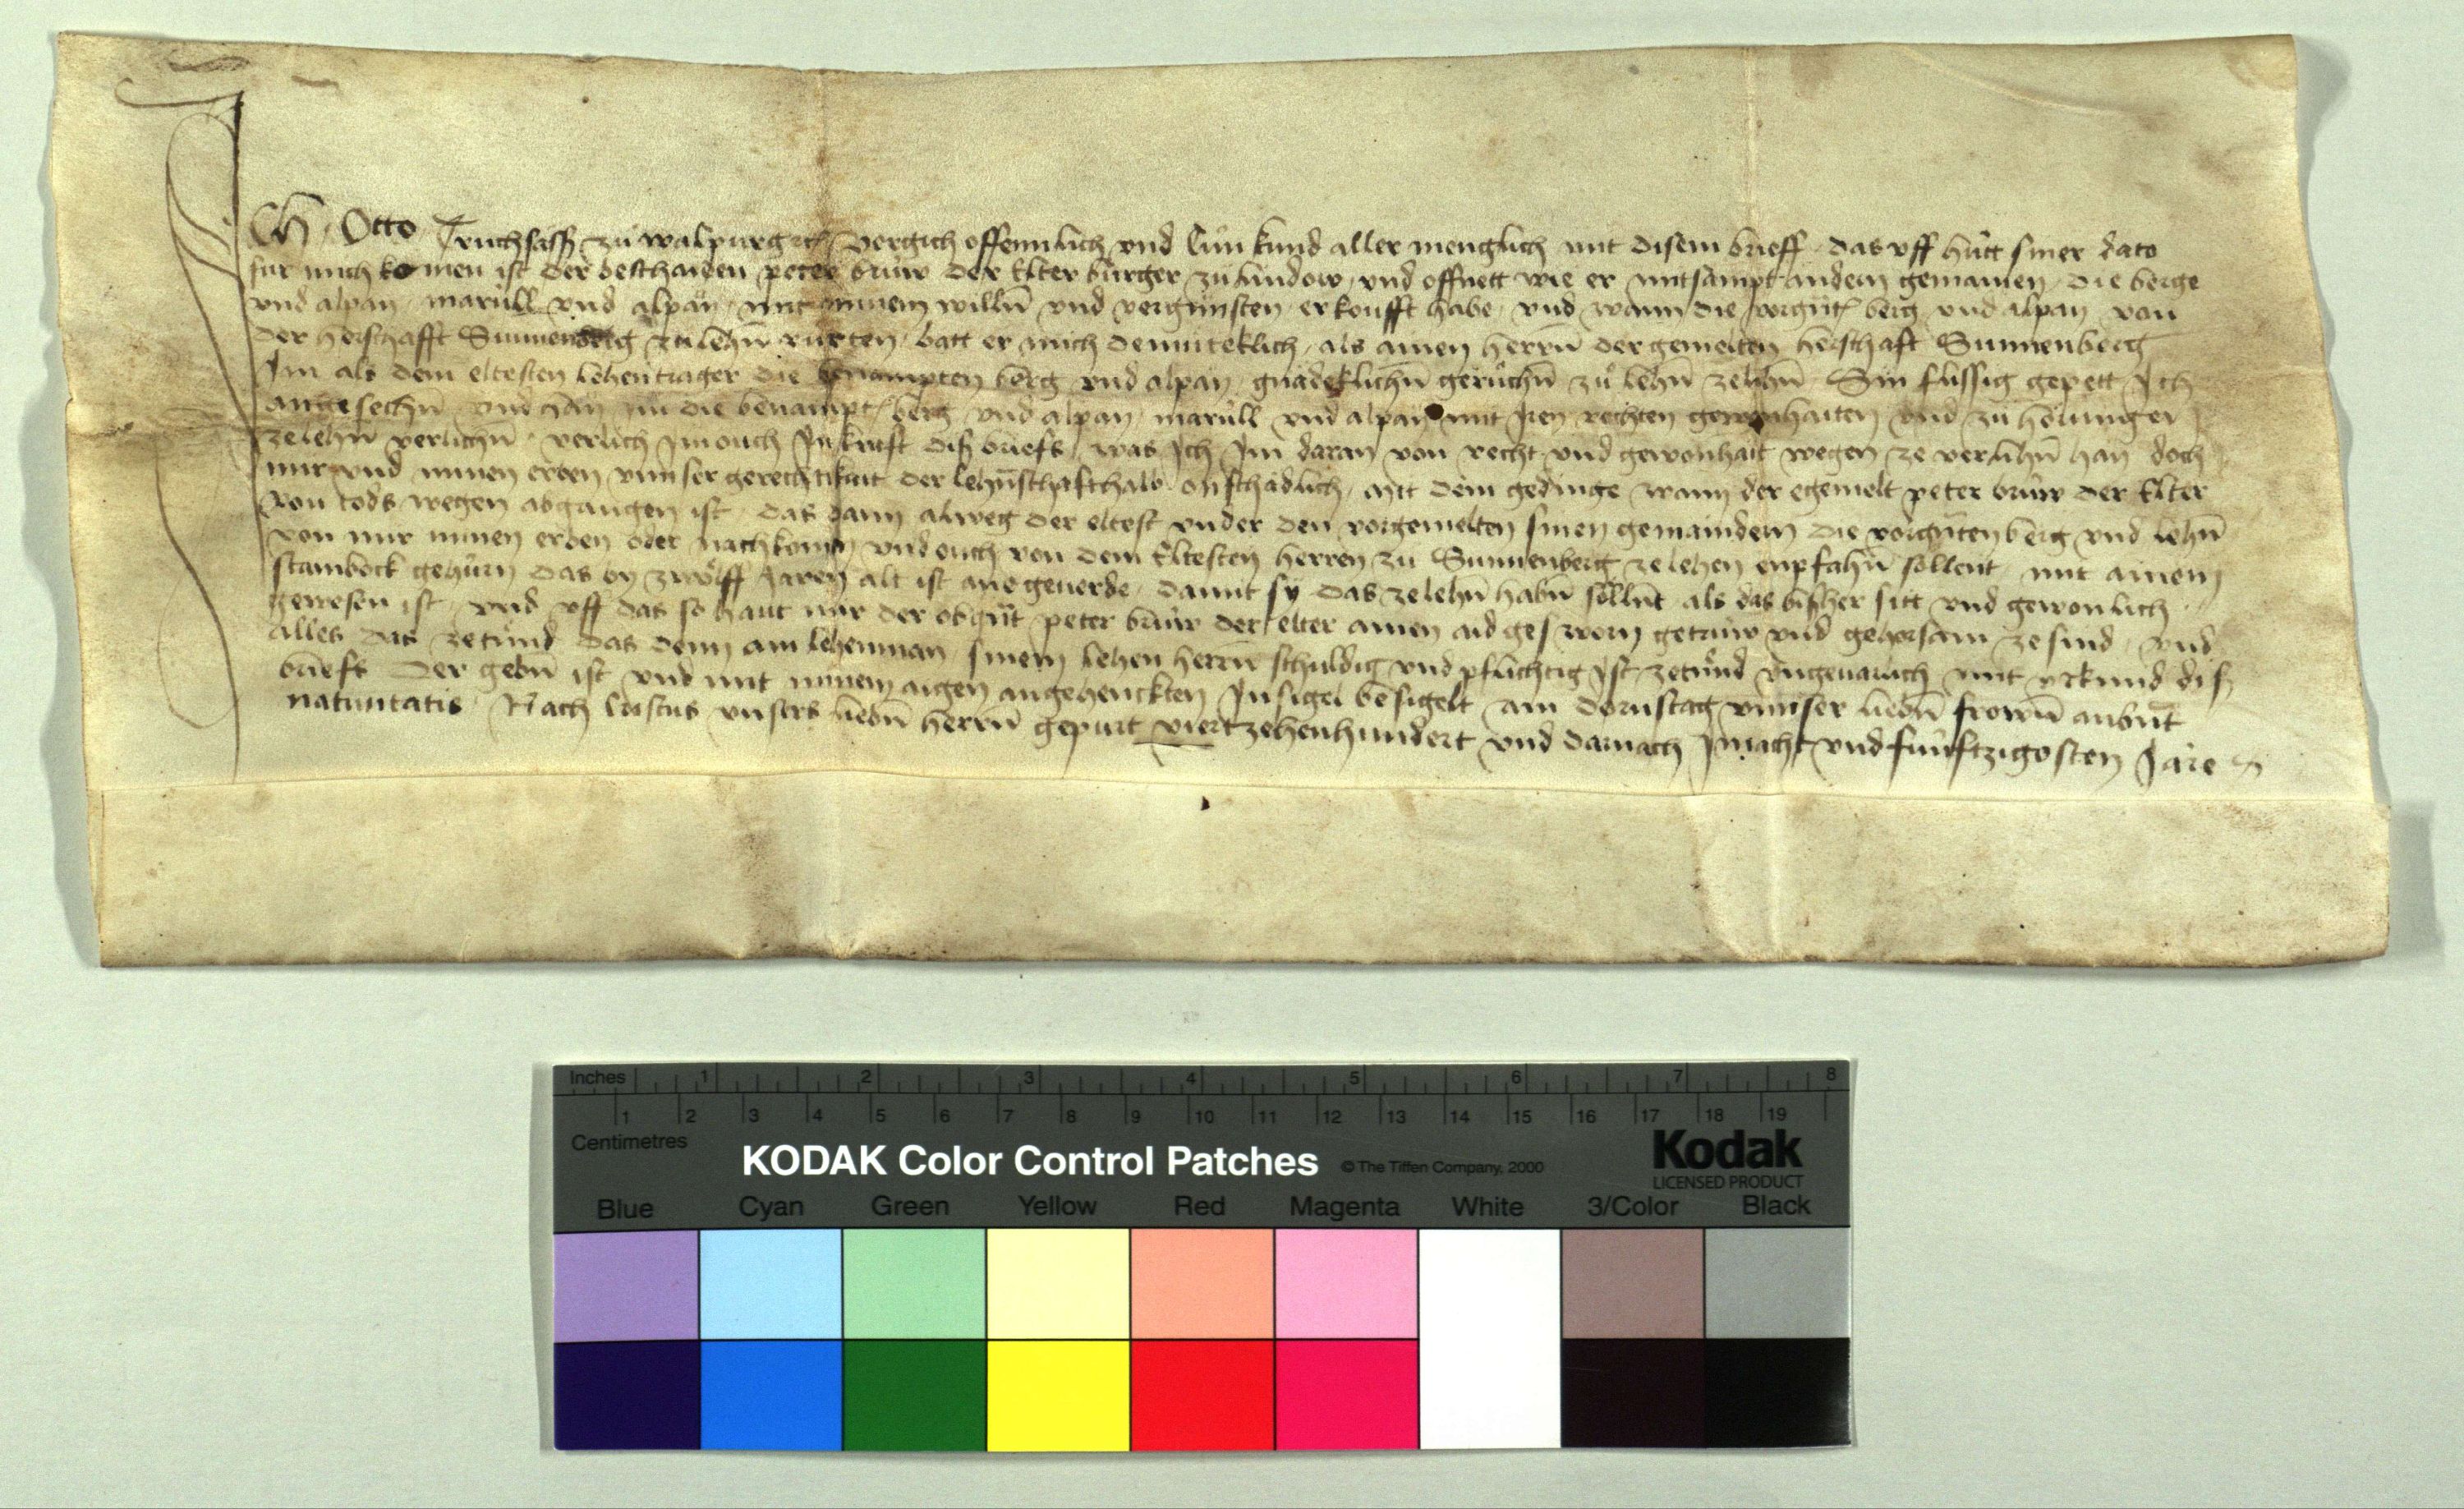 Ich Otto Truchsäss zu walpurg etc vergich offennlich vnd tůn kund aller menglich mit disem brieff das vff hütt siner dato
für mich komen ist der beschaiden peter brüw der Elter burger zu lindow vnd offnett wie er mitsampt andern gemainen die berge
vnd alpan marůll vnd alpan mit minem willn̄ vnd vergünsten erkoufft habe vnd wann die vorgüt berg vnd alpan von
der herschafft Sunnenberg zu lehn̄ rürten batt er mich demüteklich als ainen herrn̄ der gemelten herschaft Sunnenberg
Im als dem eltesten lehentrager die benampten berg vnd alpan gnädeklichn̄ gerůchn̄ zů lehn̄ zelihn̄ Sin flissig gepett Ich
angesechn̄ vnd han im die benampt berg vnd alpan marůll vnd alpan mit Iren rechten gewonhaiten vnd zů
zelehn̄ verlichn̄ verlich Im ouch In kraft diß briefs was Ich Im daran von recht vnd gewonhait wegen ze verlihn̄ han doch
mir vnd minen erben vnnser gerechtikait der lehn̄schafthalb onschädlich mit dem gedinge wann der egemelt peter brüw der Elter
von tods wegen abgangen ist das dann alweg der eltest vnder den vorgemelten sinen gemaindern die vorgüten berg vnd lehn̄
von mir minen erben oder nachkomen vnd ouch von dem Eltesten herren zu Sunnenberg zelehen enpfahn̄ söllent mit ainem
stainbock gehürn das by zwölff Jaren alt ist ane geuerde damit sy das zelehn̄ habn̄ söllnt als das bißher sitt vnd gewonlich
gewesen ist vnd vff das so haut mir der obgüt peter brüw der elter ainen aid gesworn getrüw vnd gehorsam ze sind vnd
alles das zetůnd das denn ain lehenman sinem lehen herrn̄ schuldig vnd pflichtig Ist zetůnd vngeuarlich mit vrkund diß
briefs Der gebn̄ ist vnd mit minem aigen angehenckten Insigel besigelt am dornstag vnnser liebn̄ frown̄ aubnt
natiuitatis Nach Cristus vnsers liebn̄ herrn̄ gepurt viertzehenhundert vnd darnach Im acht vnd fünftzigosten Jare
Inches 1 2 3 4 5 6 7 8
1 2 3 4 5 6 7 8 9 10 11 12 13 14 15 16 17 18 19
Centimetres
KODAK Color Control Patches © The Tiffen Company, 2000 Kodak
LICENSED PRODUCT
Blue Cyan Green Yellow Red Magenta White 3/Color Black